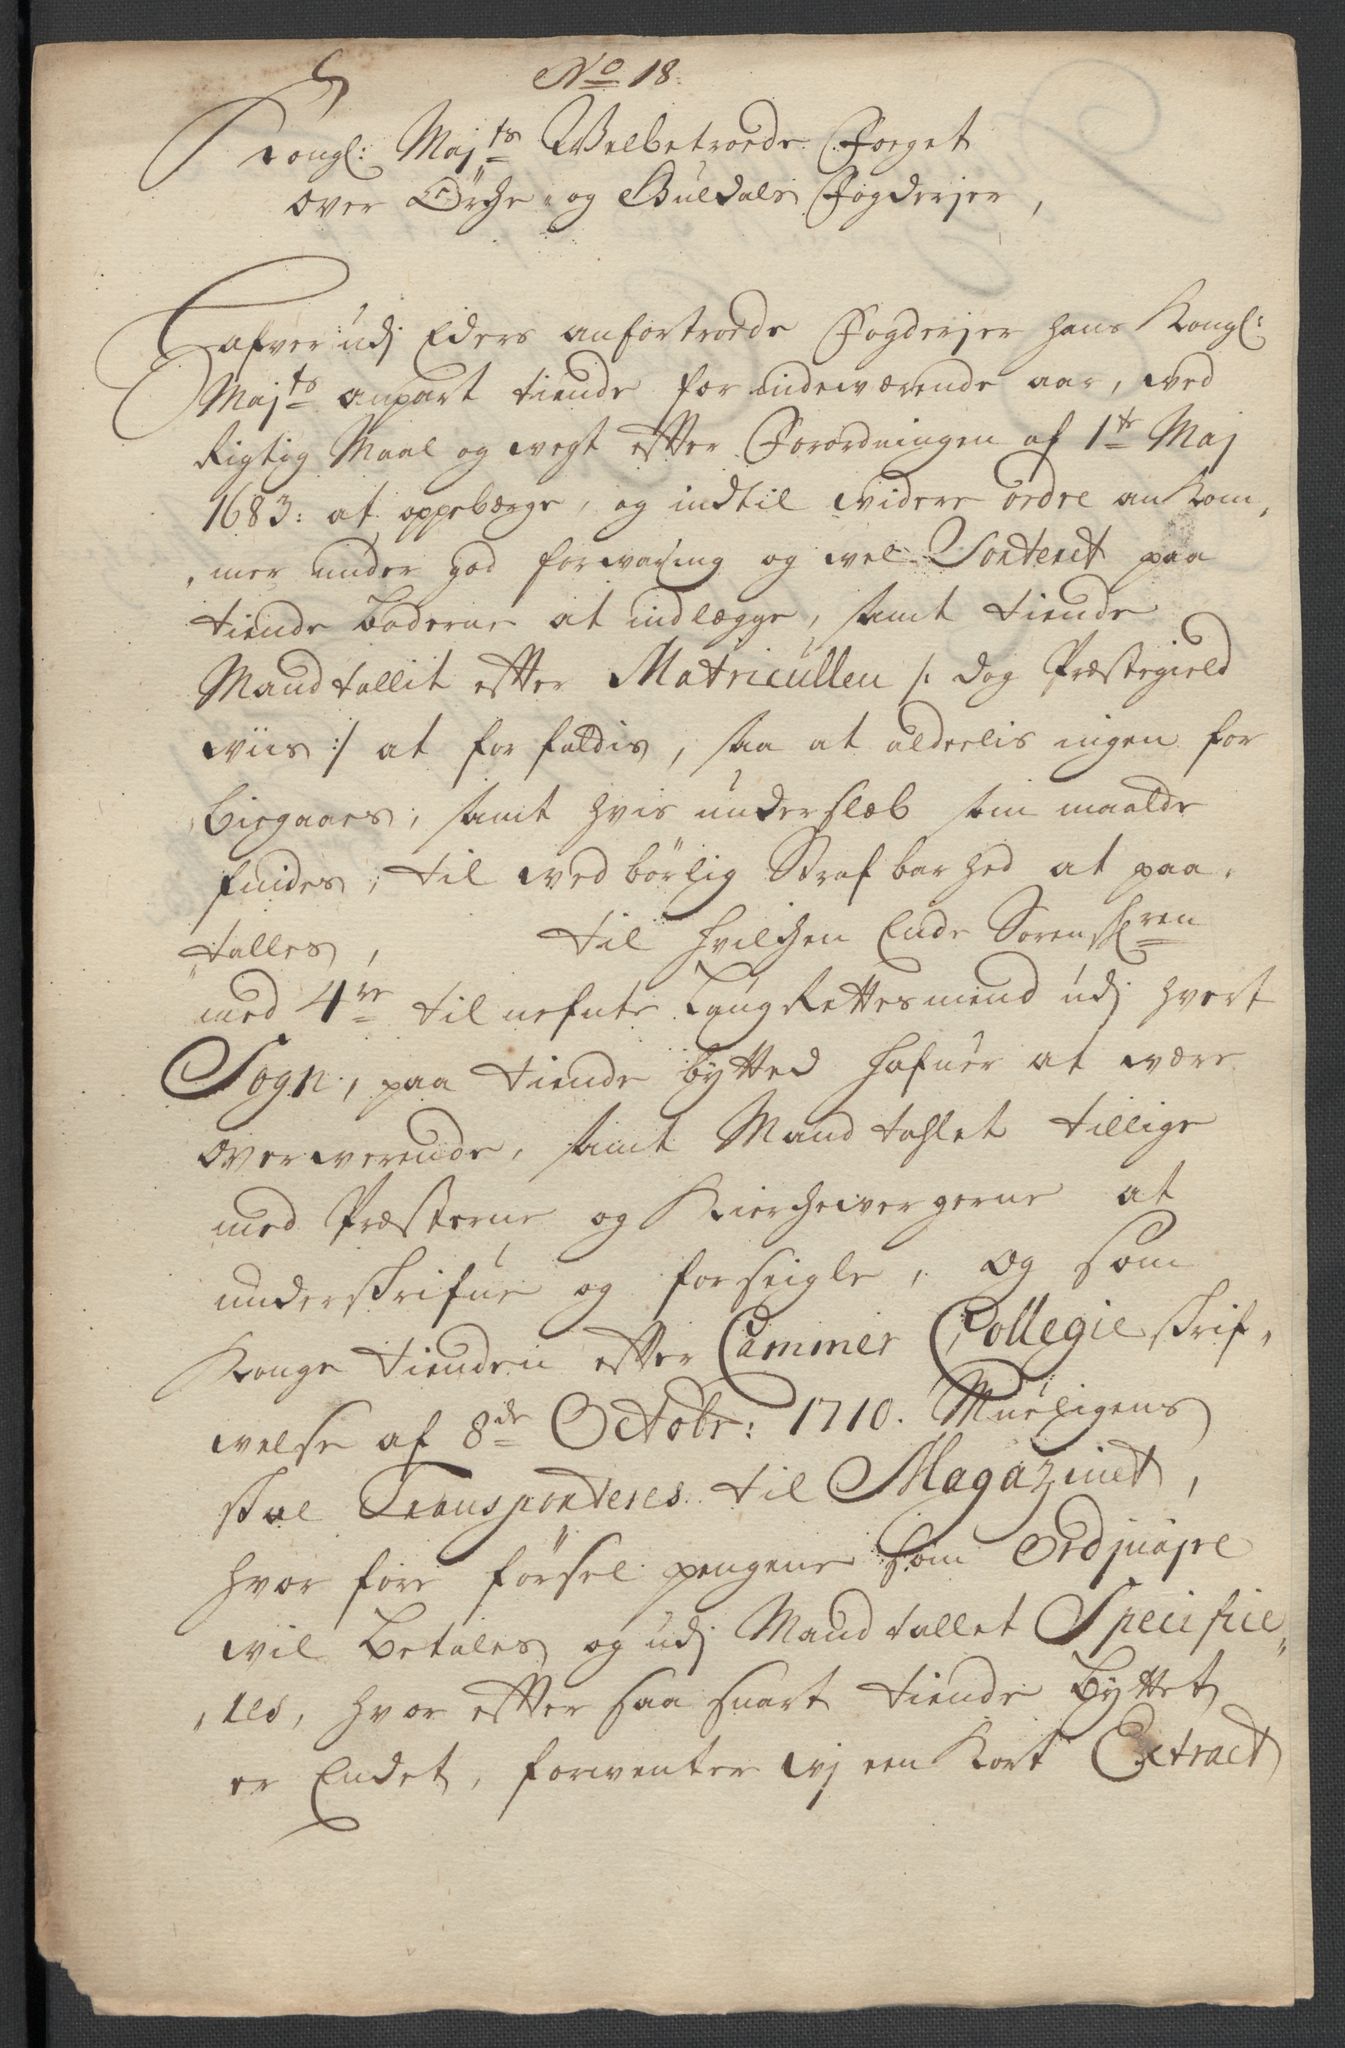 No 18.
Kongl: Maj:ts Welbetroede Foeget
over Örche- og Guldals Fogderjer,
Hafver udj Eders anfortroede Fogderjer hans Kongl:
Maj:ts anpart tiende for indeværende aar, ved
Rigtig Maal og vegt efter Forordningen af 1te Maj
1683: at oppebærge, og indtil videre ordre ankom-
mer under god forvaring og vel Sorteret paa
tiende boderne at indlægge, samt tiende
Mandtallit efter Matricullen /: dog Præstegield
viis :/ at forfattis, saa at alderlis ingen for
biegaaes, samt hvis underslæb som maatte
findes, til vedbörlig Strafbarhed at paa-
talles, til hvilchen Ende Sorenskr:ren
med 4re tilnefnte Laugrettesmend udj hvert
Sogn, paa tiende byttet hafuer at være
oververende, samt Mandtahlet tillige
med Præsterne og Kiercheværgerne at
underskrifue og forseigle, og som
Konge tienden efter Cammer Collegie skrif-
velse af 8de Octobr: 1710. Mueligens
skal Transporteres til Magazinet,
hvor fore försel pengene som Ordinaire
vil betales, og udj Mandtallet Specifice-
res, hvor efter saa snart tiende byttet
er Endet, forventer vj een Kort Extract